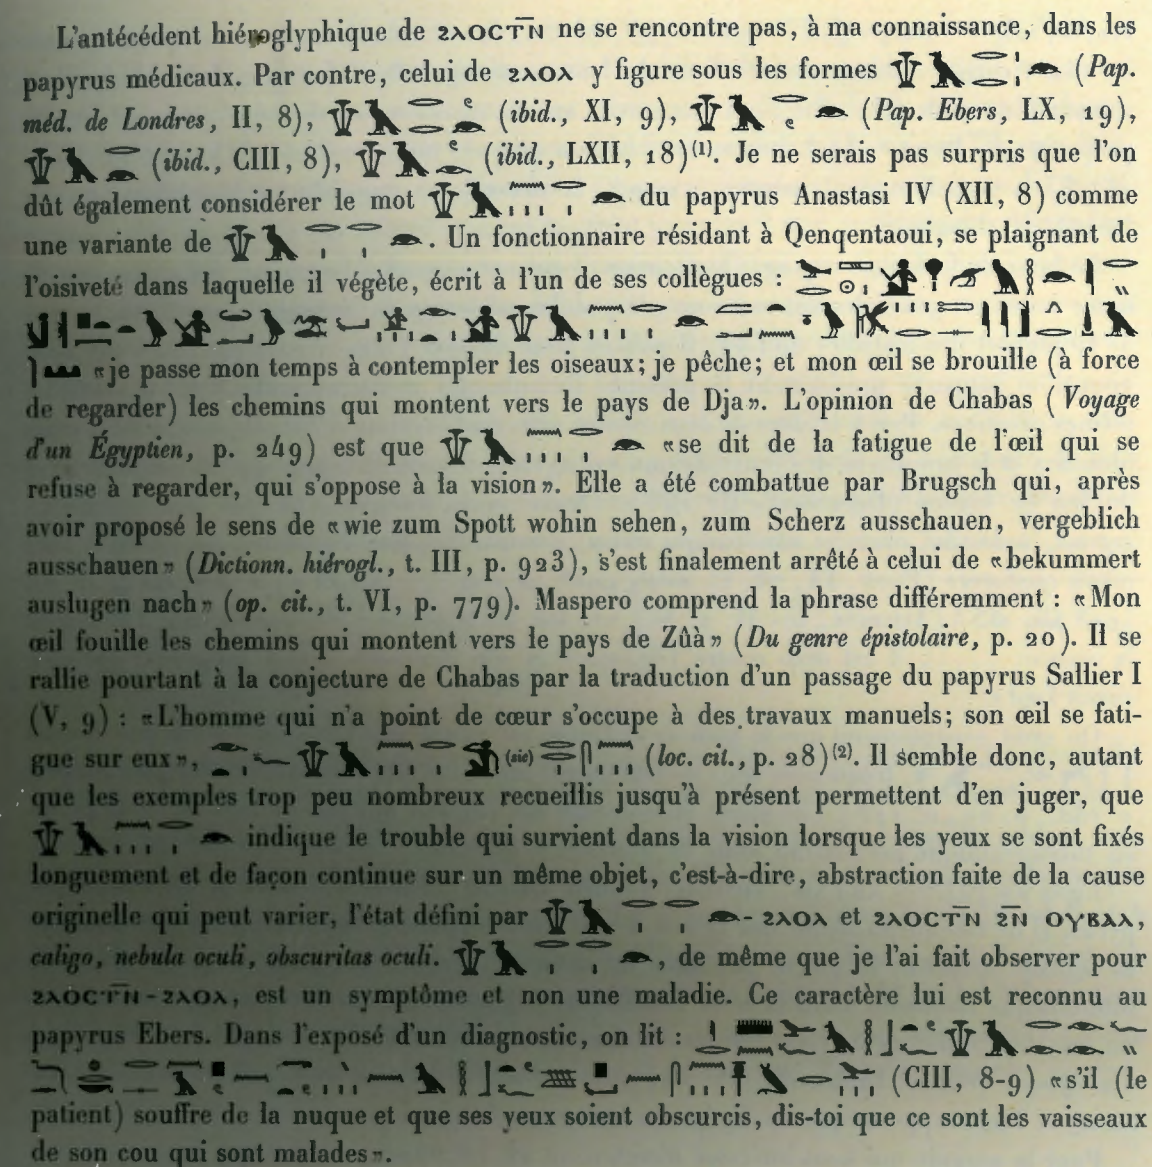 L'antécédent hiéroglyphique de ϩⲗⲟⲥⲧⲛ̅ ne se rencontre pas, à ma connaissance, dans les
papyrus médicaux. Par contre, celui de ϩⲗⲟⲗ y figure sous les formes (Pap.
méd. de Londres, II, 8), (ibid., XI, 9), (Pap. Ebers, LX, 19),
(ibid., CIII, 8), (ibid., LXII, 18)(1). Je ne serais pas surpris que l'on
dût également considérer le mot du papyrus Anastasi IV (XII, 8) comme
une variante de . Un fonctionnaire résidant à Qenqentaoui, se plaignant de
l'oisiveté dans laquelle il végète, écrit à l'un de ses collègues :
«je passe mon temps à contempler les oiseaux; je pêche; et mon œil se brouille (à force
de regarder) les chemins qui montent vers le pays de Dja». L'opinion de Chabas (Voyage
d'un Égyptien, p. 249) est que «se dit de la fatigue de l'œil qui se
refuse à regarder, qui s'oppose à la vision». Elle a été combattue par Brugsch qui, après
avoir proposé le sens de «wie zum Spott wohin sehen, zum Scherz ausschauen, vergeblich
ausschauen» (Dictionn. hiérogl., t. III, p. 923), s'est finalement arrêté à celui de «bekummert
auslugen nach» (op. cit., t. VI, p. 779). Maspero comprend la phrase différemment : «Mon
œil fouille les chemins qui montent vers le pays de Zûà» (Du genre épistolaire, p. 20). Il se
rallie pourtant à la conjecture de Chabas par la traduction d'un passage du papyrus Sallier I
(V, 9) : «L'homme qui n'a point de cœur s'occupe à des travaux manuels; son œil se fati-
gue sur eux», (sic) (loc. cit., p. 28)(2). Il semble donc, autant
que les exemples trop peu nombreux recueillis jusqu'à présent permettent d'en juger, que
indique le trouble qui survient dans la vision lorsque les yeux se sont fixés
longuement et de façon continue sur un même objet, c'est-à-dire, abstraction faite de la cause
originelle qui peut varier, l'état défini par - ϩⲗⲟⲗ et ϩⲗⲟⲥⲧⲛ̅ ϩⲛ̅ ⲟⲩⲃⲁⲗ,
caligo, nebula oculi, obscuritas oculi. , de même que je l'ai fait observer pour
ϩⲗⲟⲥⲧⲛ̅-ϩⲗⲟⲗ, est un symptôme et non une maladie. Ce caractère lui est reconnu au
papyrus Ebers. Dans l'exposé d'un diagnostic, on lit :
(CIII, 8-9) «s'il (le
patient) souffre de la nuque et que ses yeux soient obscurcis, dis-toi que ce sont les vaisseaux
de son cou qui sont malades».